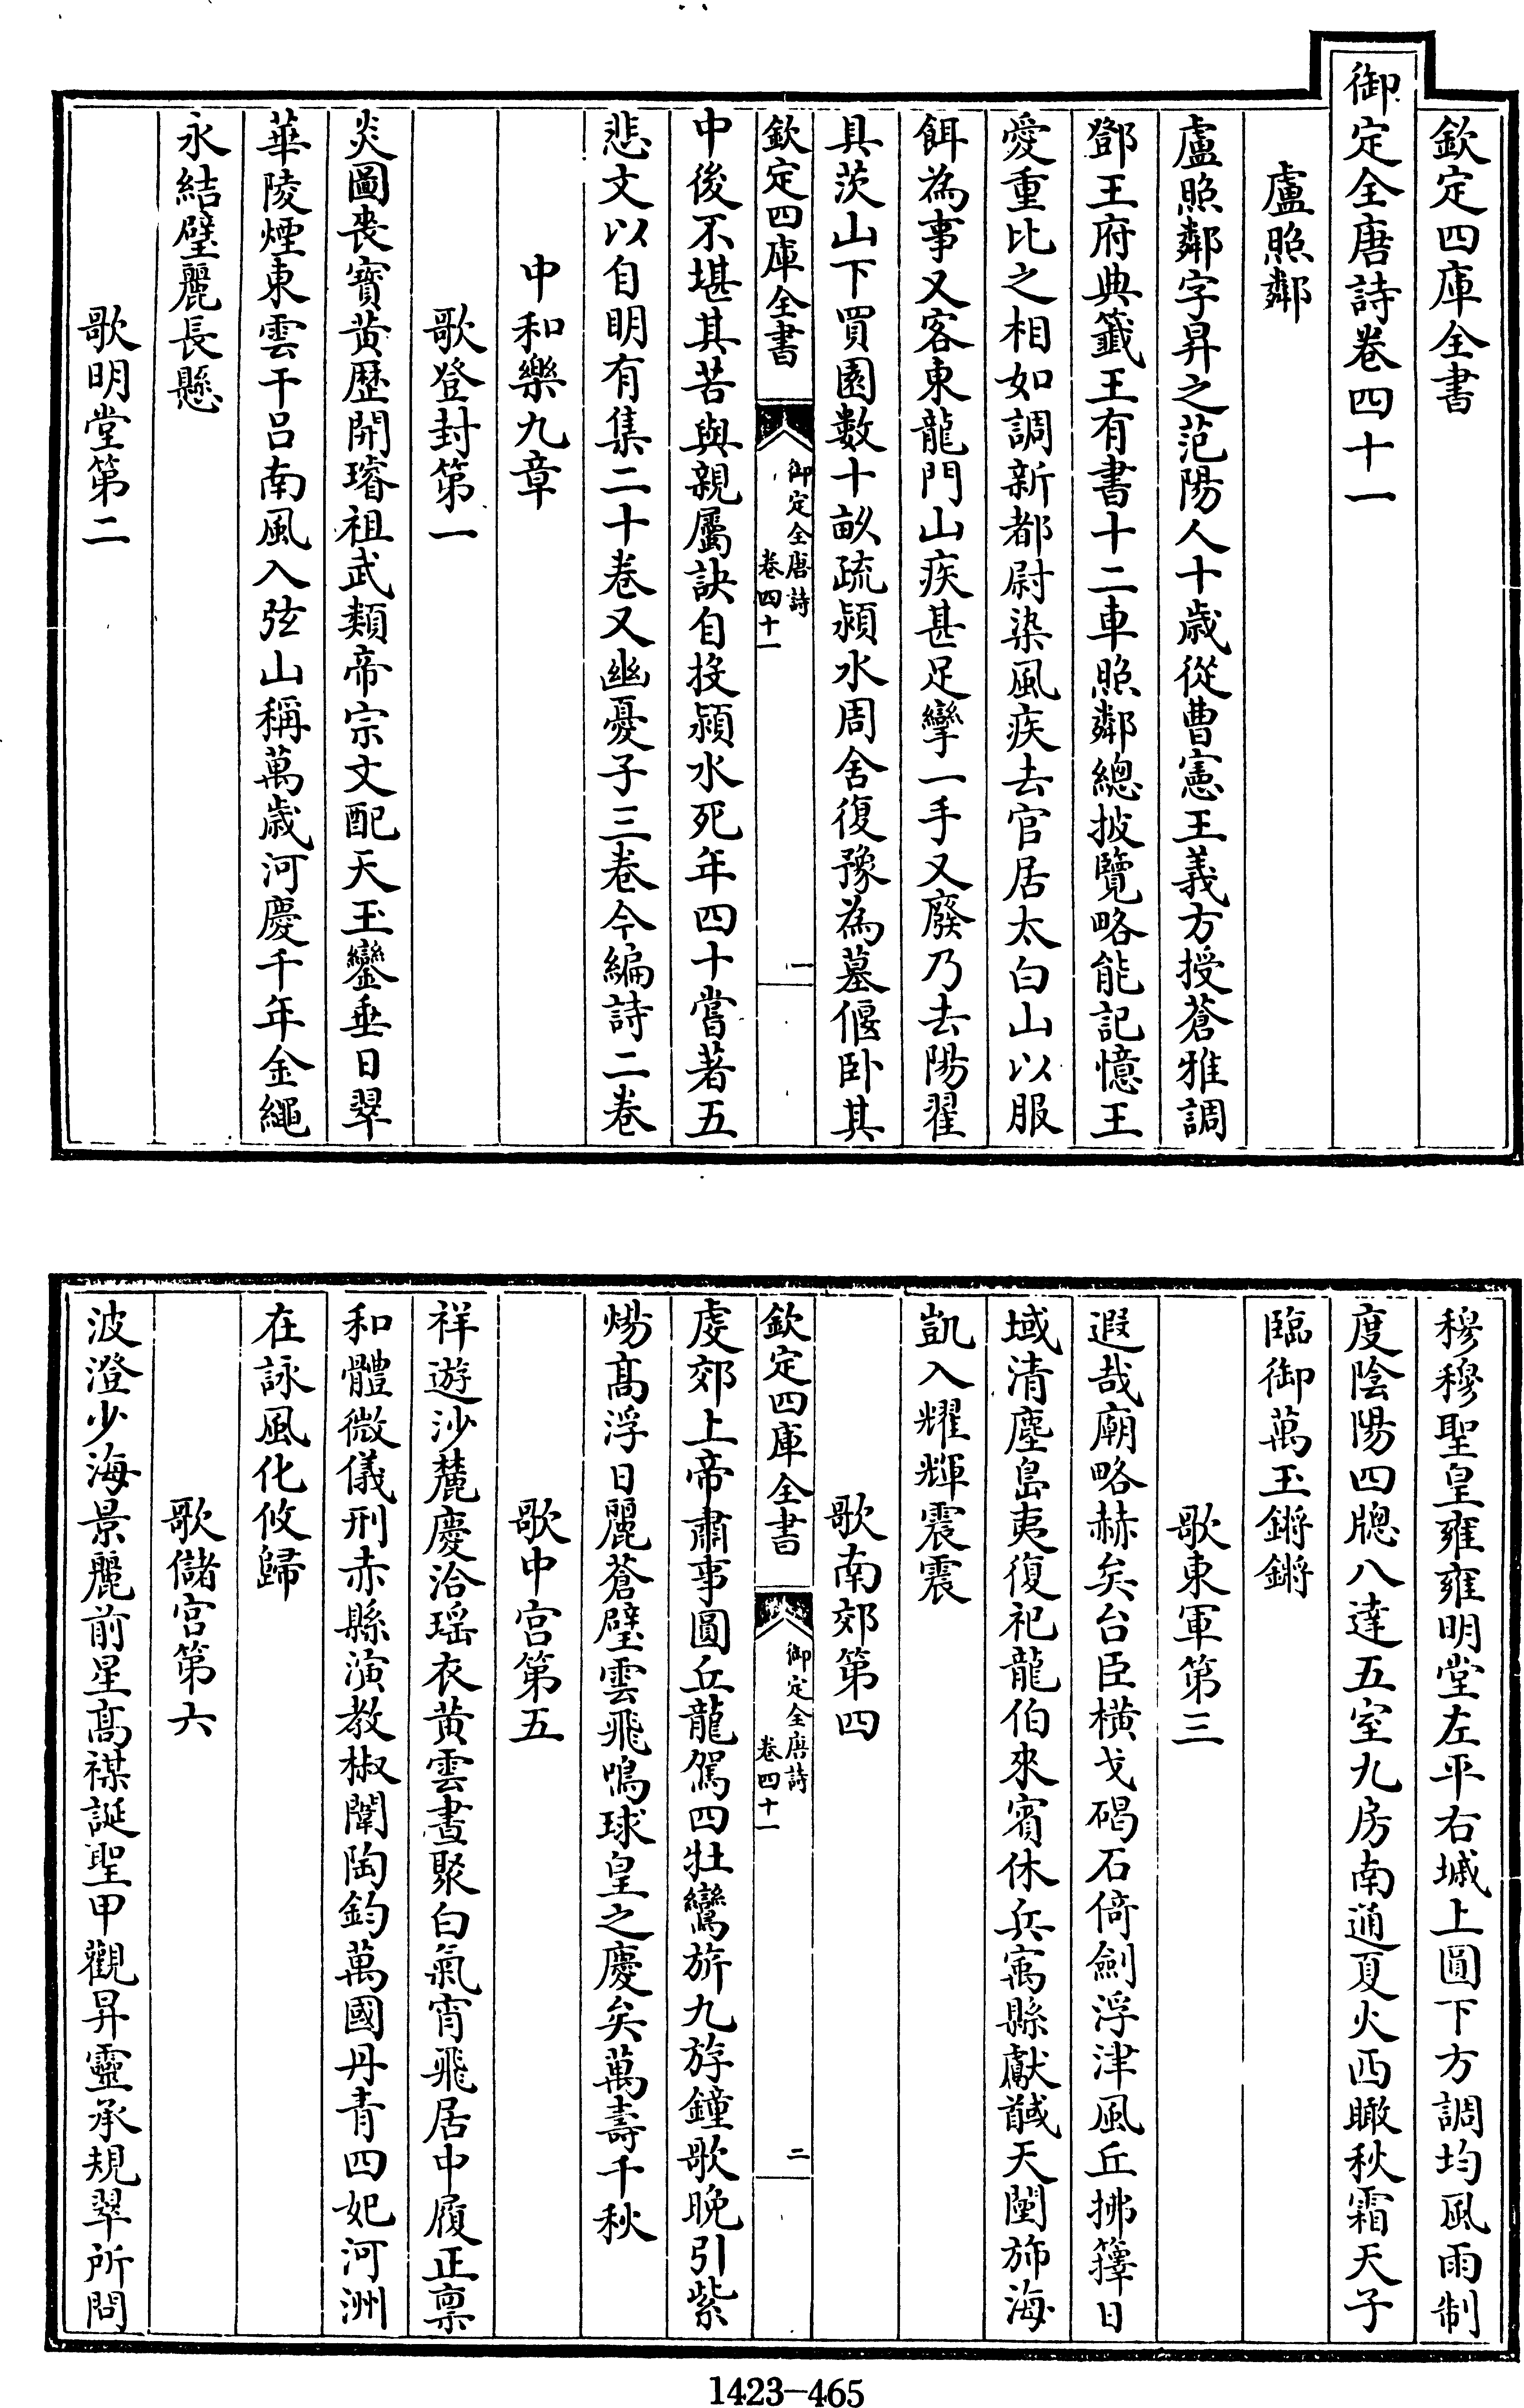 欽定四庫全書
御定全唐詩卷四十一
盧照鄰
盧照鄰字昇之范陽人十歲從曹憲王義方授蒼雅調
鄧王府典籤王有書十二車照鄰總披覽略能記憶王
愛重比之相如調新都尉染風疾去官居太白山以服
餌為事又客東龍門山疾甚足攣一手又廢乃去陽翟
具茨山下買園數十畝疏潁水周舍復豫為墓偃卧其
欽定四庫全書
御定全唐詩
卷四十一
一
中後不堪其苦與親屬訣自投潁水死年四十嘗著五
悲文以自明有集二十卷又幽憂子三卷今編詩二卷
中和樂九章
歌登封第一
炎圖喪寶黃歷開璿祖武類帝宗文配天玉鑾垂日翠
華陵煙東雲干呂南風入弦山稱萬歲河慶千年金繩
永結璧麗長懸
歌明堂第二
穆穆聖皇雍雍明堂左平右墄上圓下方調均風雨制
度陰陽四牕八達五室九房南通夏火西瞰秋霜天子
臨御萬玉鏘鏘
歌東軍第三
遐哉廟略赫矣台臣橫戈碣石倚劍浮津風丘拂籜日
域清塵島夷復祀龍伯來賓休兵寓縣獻馘天闉斾海
凱入耀輝震震
歌南郊第四
欽定四庫全書
御定全唐詩
卷四十一
二
虔郊上帝肅事圓丘龍駕四牡鸞旂九斿鐘歌晚引紫
煬高浮日麗蒼璧雲飛鳴球皇之慶矣萬壽千秋
歌中宮第五
祥遊沙麓慶洽瑤衣黃雲晝聚白氣宵飛居中履正禀
和體微儀刑赤縣演教椒闈陶鈞萬國丹青四妃河洲
在詠風化攸歸
歌儲宮第六
波澄少海景麗前星高禖誕聖甲觀昇靈承規翠所問
1423—465